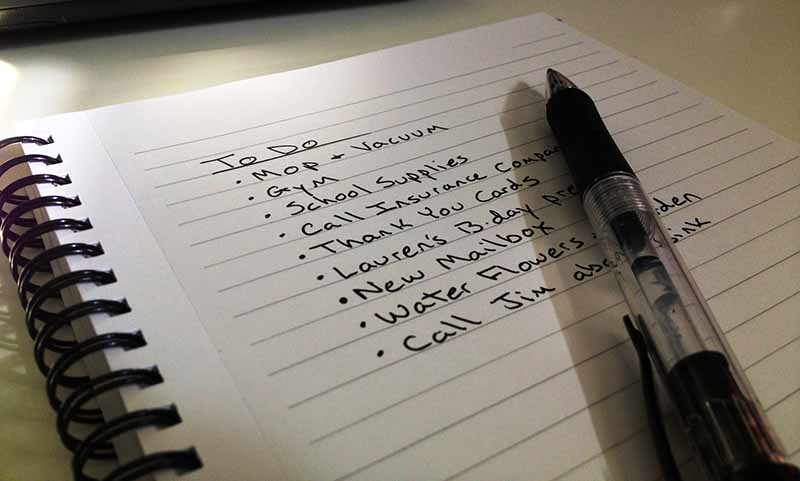 To Do
• Mop + Vacuum
• Gym
• School Supplies
• Call Insurance Compa
• Thank You Cards
• Lauren's B.day pre
• New Mailbox
• Water Flowers
• Call Jim sink